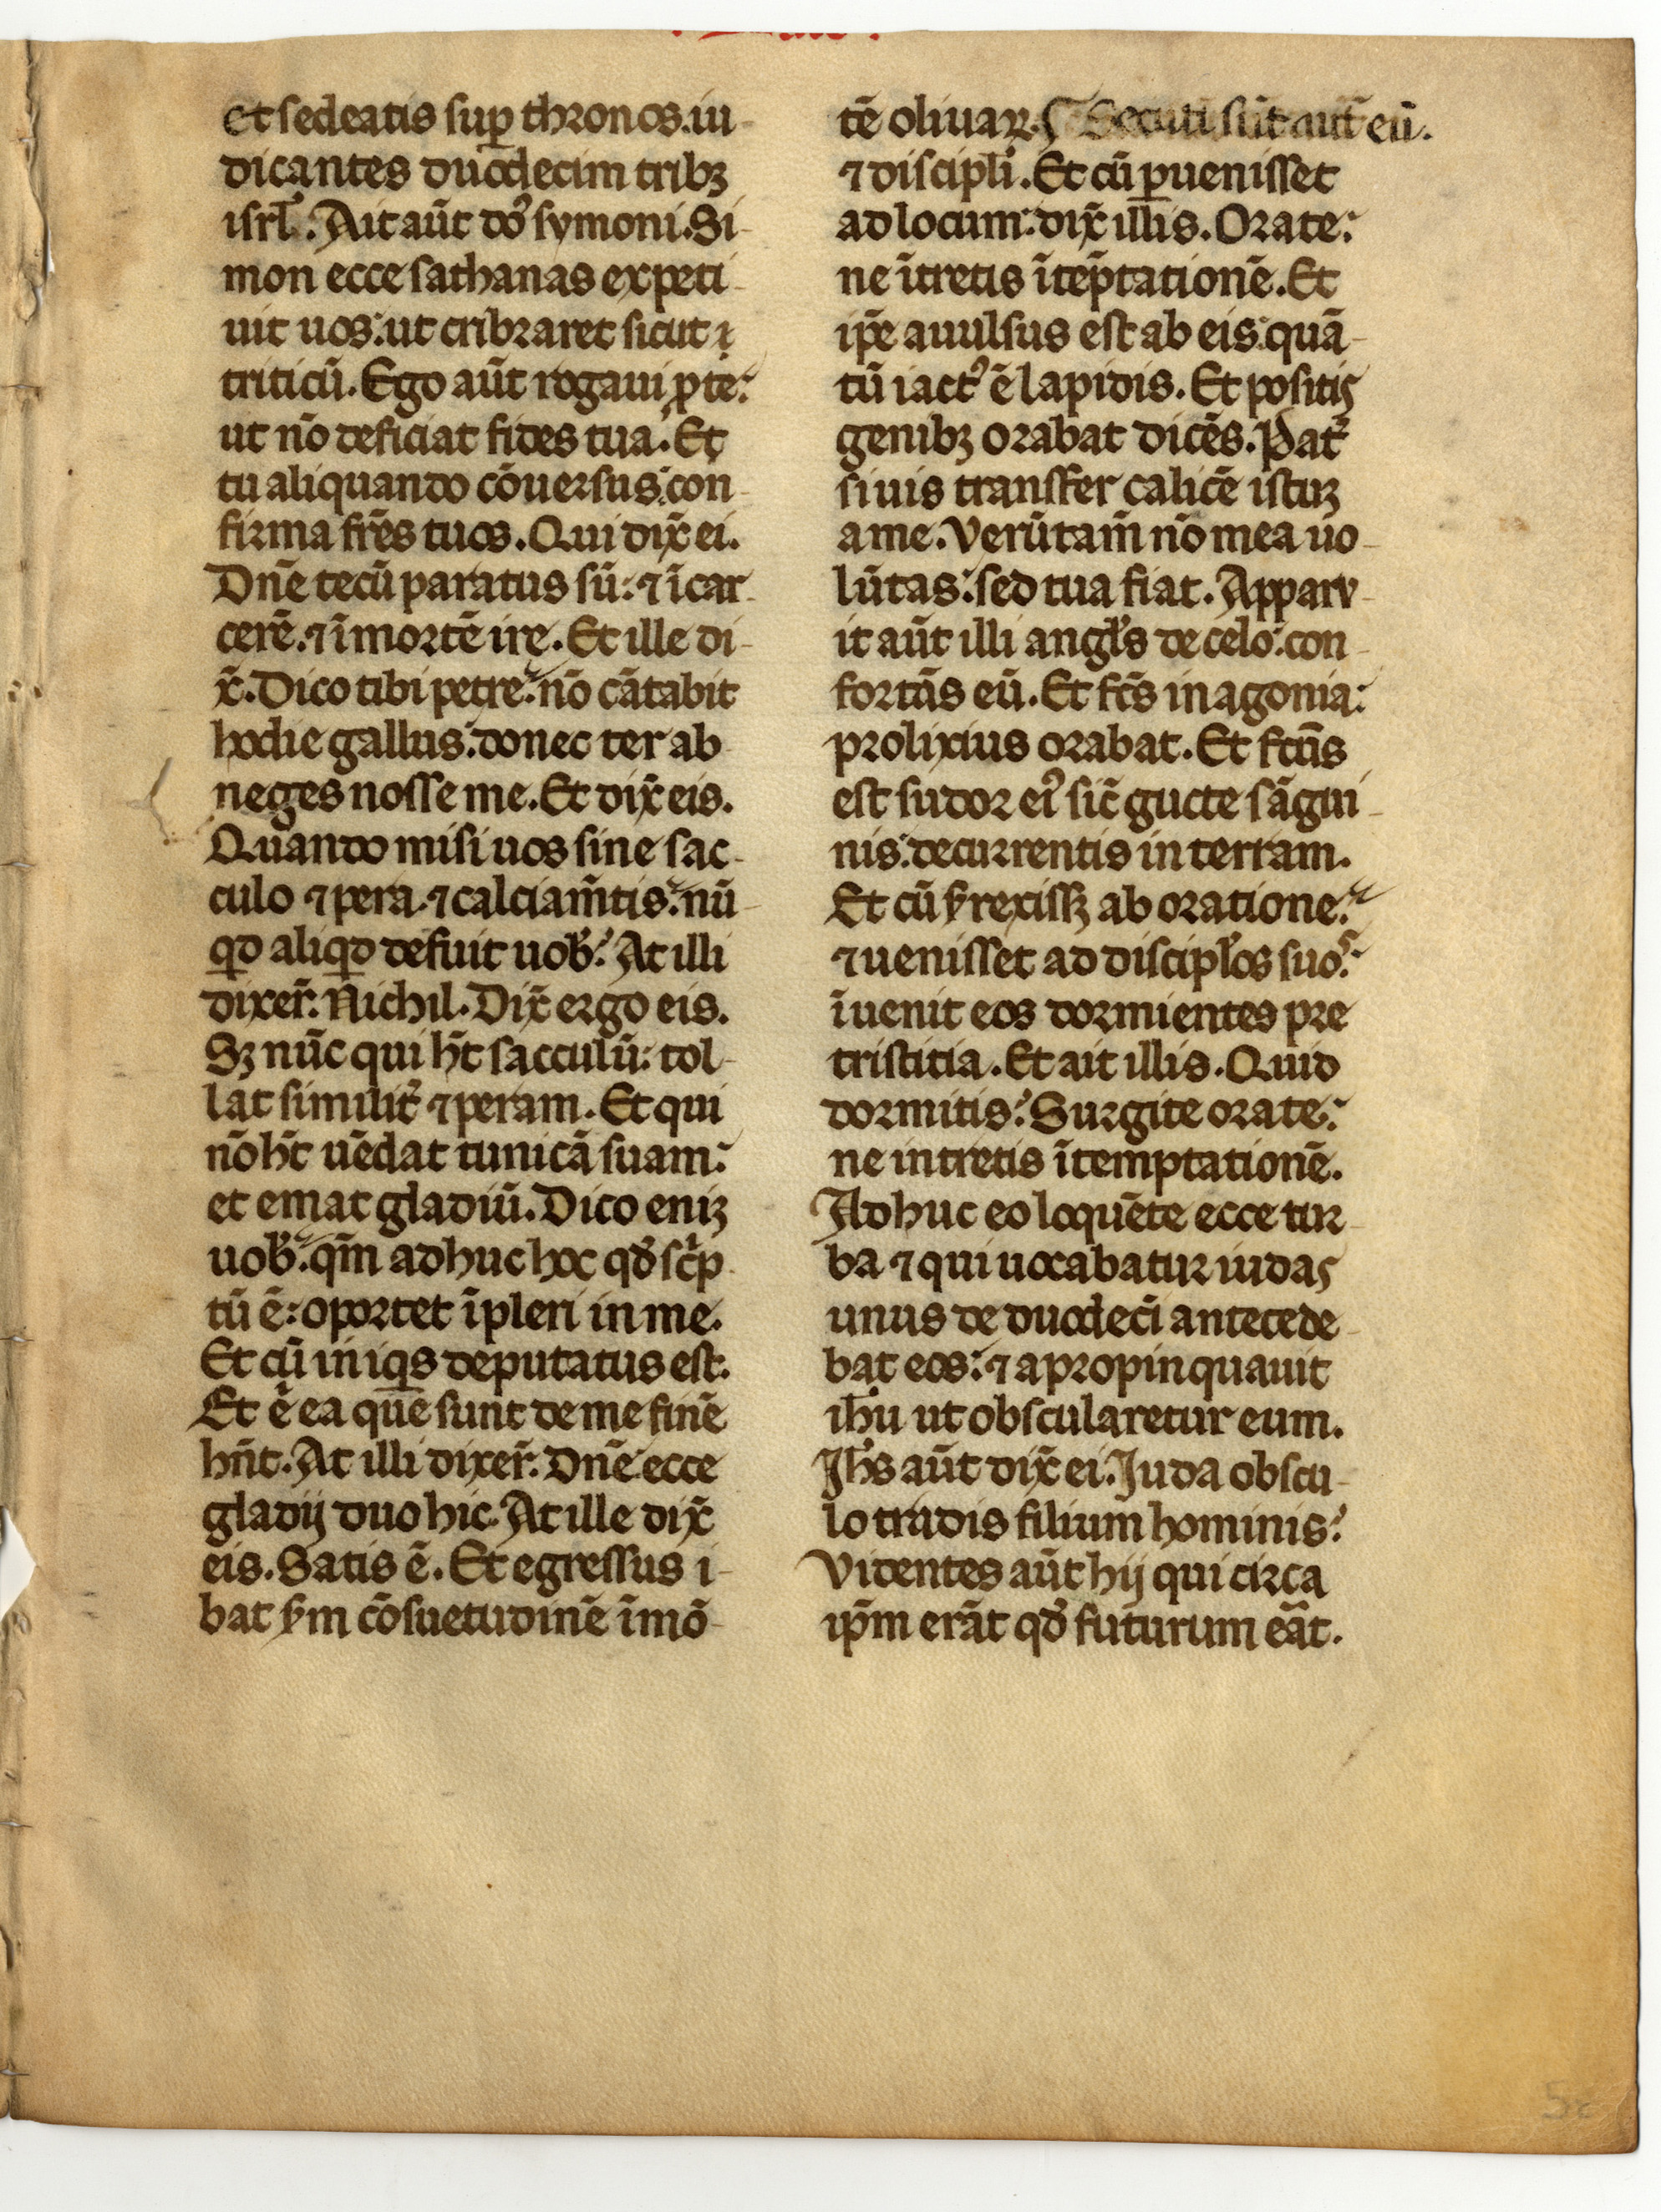 et sedeatis sup̱ thronos.iu-
dicantes duodecim tribꝫ
isrl̓. Ait aūt do᷒ symoni.Si-
mon ecce sathanas expeti-
uit uos: ut cribraret sicut ı
triticū. Ego aūt rogaui ꝓ te:
ut nō deficiat fides tua. Et
tu aliquando cōuersus: con-
firma fr̄es tuos. Qui dix̄ ei.
Dn̄e tecū paratus sū: ⁊ ī car-
cerē. ⁊ ī mortē ire. Et ille di-
x̄. Dico tibi petre: nō cātabit
hodie gallus: donec ter ab
neges nosse me. Et dix̄ eis.
Quando misi uos sine sac-
culo ⁊ pera ⁊ calciam̄tis: nū-
qd aliqd defuit uob̓? At illi
dixer̄. Nichil. Dix̄ ergo eis.
Sꝫ nūc qui h̄t sacculū: tol-
lat similit̓ ⁊ peram. Et qui
nō h̄t uēdat tunicā suam:
et emat gladiū. Dico eniꝫ
uob̓: qm̄ adhuc hoc qd̓ scͥp-
tū ē: oportet īpleri in me.
Et cū iniqͥs deputatus est.
Et .n. ea que sunt de me finē
hn̄t. At illi dixer̄. Dn̄e: ecce
gladij duo hic. At ille dix̄
eis. Satis ē. Et egressus i-
bat s̓m cōsuetudinē ī mō-
tē oliuaꝝ. Secuti sūt aūt eū.
⁊ discipl̓i. Et cū ꝑuenisset
ad locum: dix̄ illis. Orate:
ne ītretis ī tēptationē. Et
ip̄e auulsus est ab eis: quā-
tū iactꝰ ē lapidis. Et positis
genibꝫ orabat dicēs. Pat̓
si uis transfer calicē istuꝫ
a me. Verūtam̄ nō mea uo-
lūtas: sed tua fiat. Apparu-
it aūt illi angl̓s de celo: con-
fortās eū. Et fc̄s in agonia:
prolixius orabat. Et fcūs
est sudor eiꝰ sic̄ gutte sāgui-
nis: decurrentis in terram.
Et cū s̓rexissꝫ ab oratione:
⁊ uenisset ad discipl̓os suos:
īuenit eos dormientes pre
tristitia. Et ait illis. Quid
dormitis? Surgite orate:
ne intretis ī temptationē.
Adhuc eo loquēte ecce tur-
ba ⁊ qui uocabatur iudas
unus de duodecī antecede-
bat eos: ⁊ apropinquauit
ih̄u ut obscularetur eum.
Ih̄s aūt dix̄ ei. Juda obscu-
lo tradis filium hominis?
Videntes aūt hij qui circa
ip̄m erāt qd̓ futurum eāt.